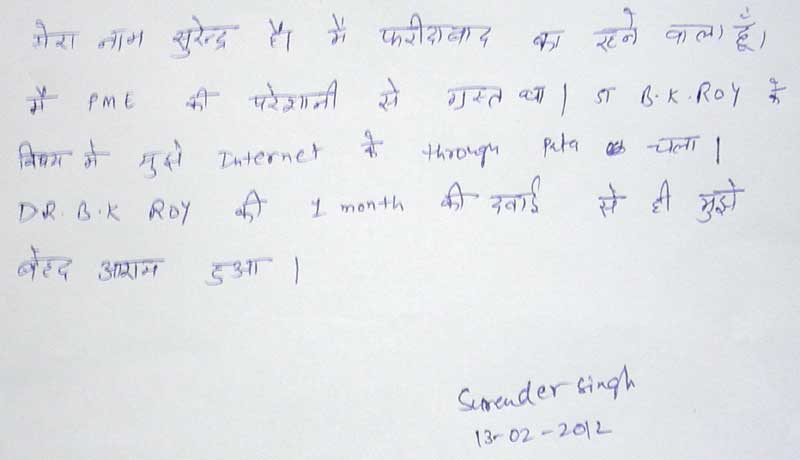 मेरा नाम सुरेन्द्र है। मैं फरीदाबाद का रहने वाला हूँ।
मैं PME की परेशानी से ग्रस्त था। डा B.K.ROY के
विषय मे मुझे Internet के through Pata चला।
DR. B.K ROY की 1 month की दवाई से ही मुझे
बेहद आराम हुआ।
Surender singh
13-02-2012